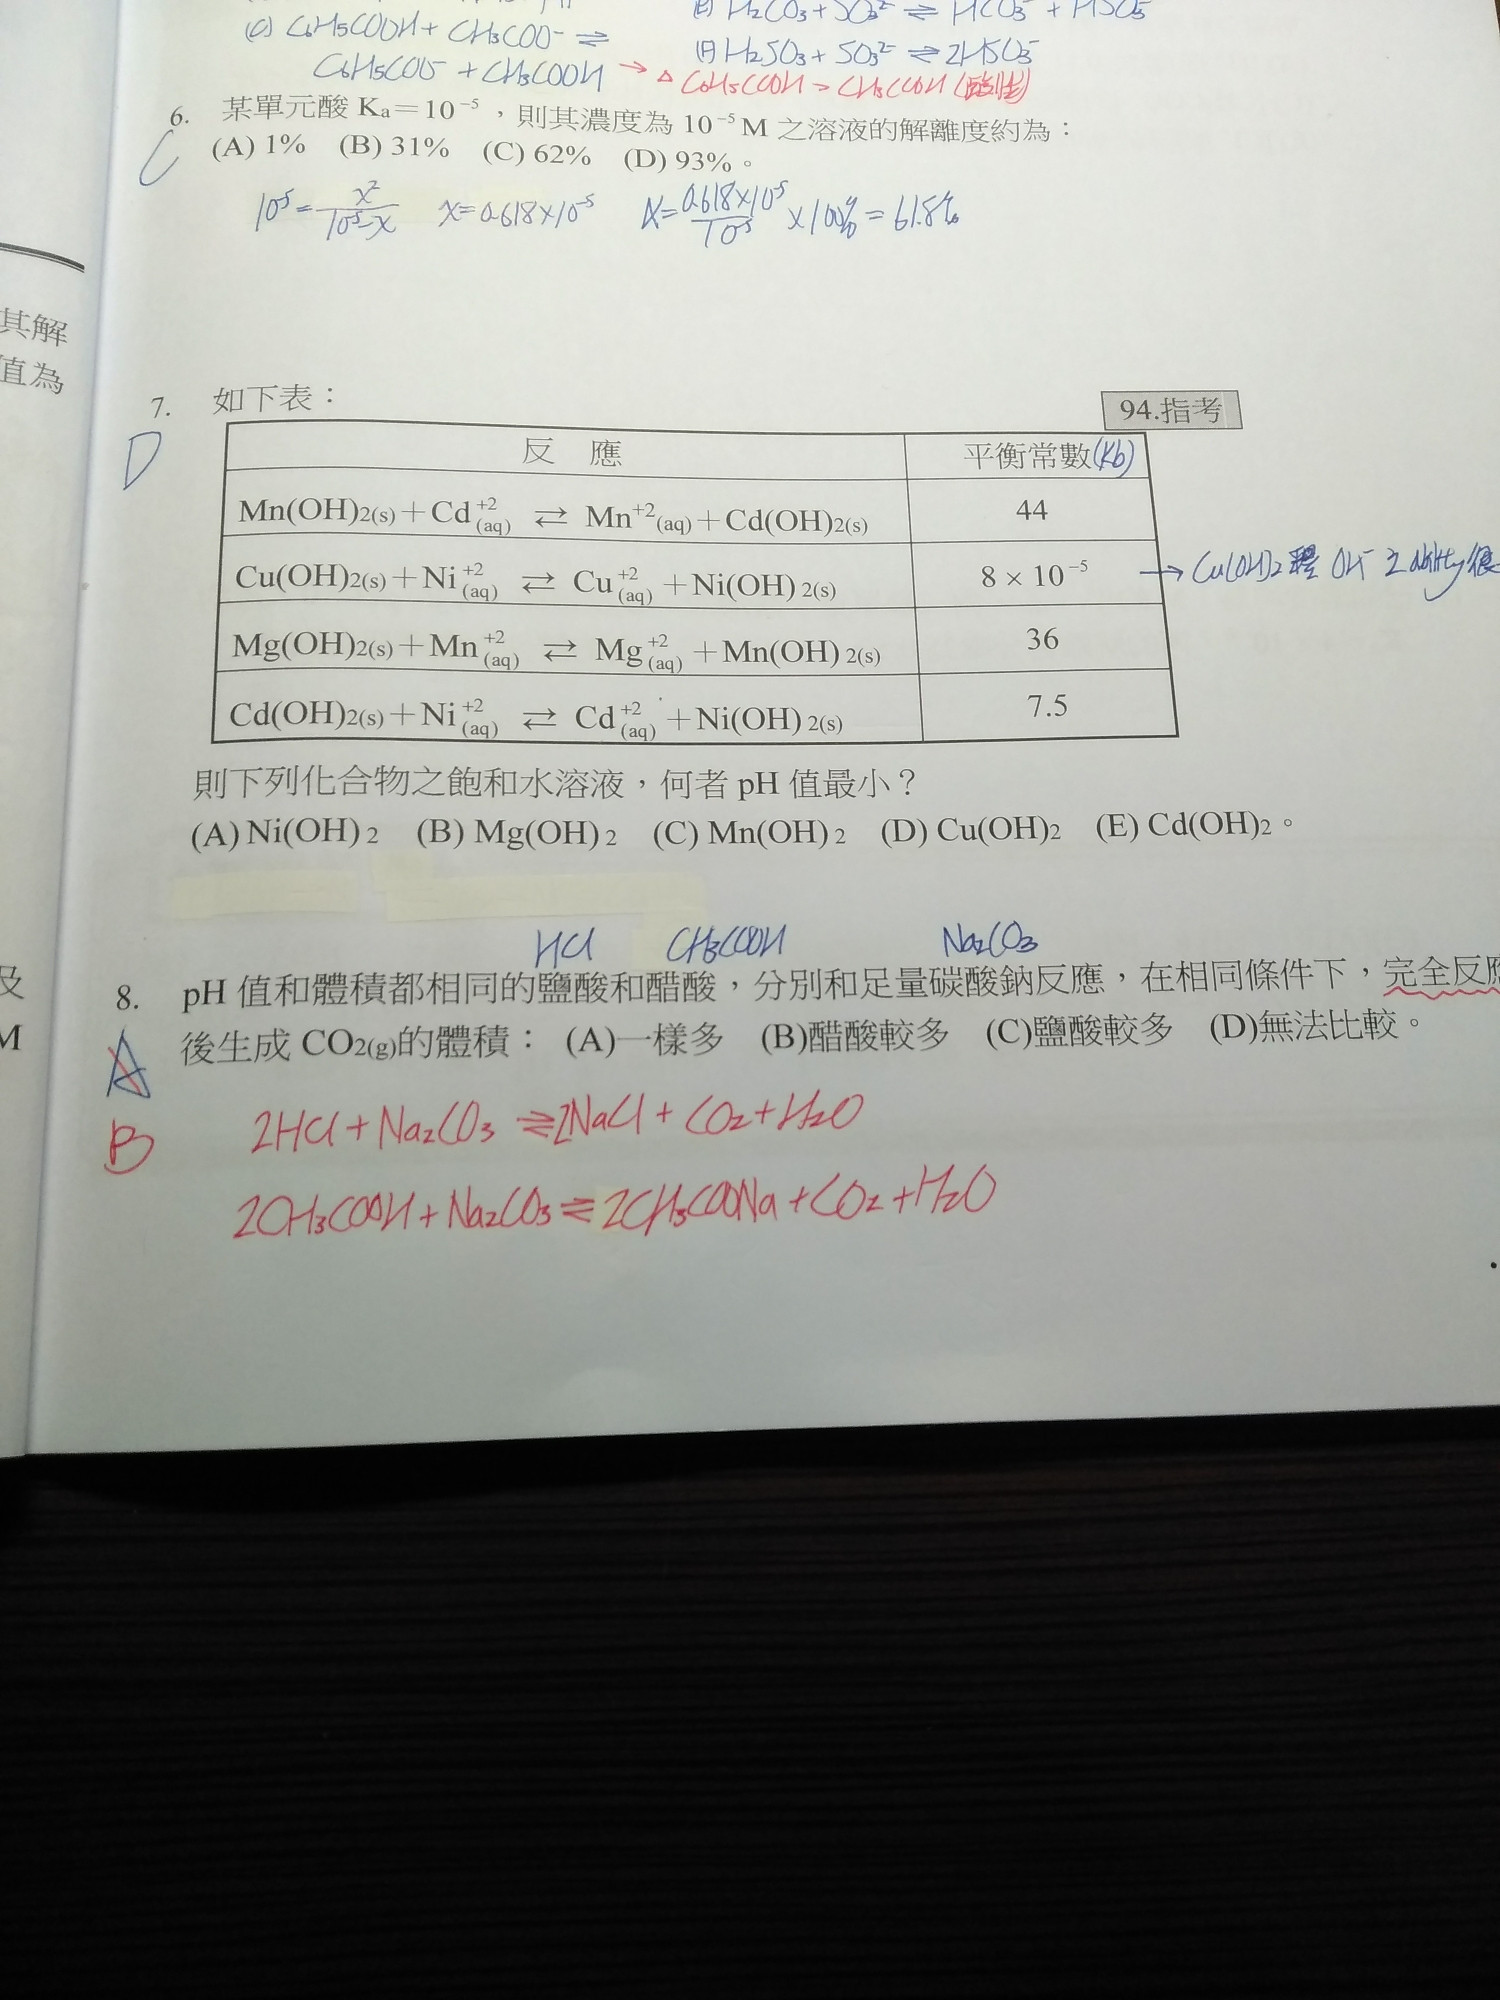 (C) C6H5COOH + CH3COO- ⇌
C6H5COO- + CH3COOH → △ C6H5COOH > CH3COOH (酸性)
(E) H2CO3 + SO3²⁻ ⇌ HCO3⁻ + HSO3⁻
H2SO3 + SO3²⁻ ⇌ 2HSO3⁻
6. 某單元酸 Ka=10⁻⁵,則其濃度為 10⁻⁵M 之溶液的解離度約為:
C
(A) 1% (B) 31% (C) 62% (D) 93%。
10⁻⁵ = x²/10⁻⁵-x x=0.618×10⁻⁵ α=0.618×10⁻⁵/10⁻⁵ ×100% = 61.8%
其解
值為
7. 如下表:
94.指考
D
反 應 平衡常數(Kb)
Mn(OH)2(s)+Cd+2(aq) ⇄ Mn+2(aq)+Cd(OH)2(s) 44
Cu(OH)2(s)+Ni+2(aq) ⇄ Cu+2(aq)+Ni(OH)2(s) 8 × 10⁻⁵
→ Cu(OH)2 OH⁻ 之 ability 很
Mg(OH)2(s)+Mn+2(aq) ⇄ Mg+2(aq)+Mn(OH)2(s) 36
Cd(OH)2(s)+Ni+2(aq) ⇄ Cd+2(aq)+Ni(OH)2(s) 7.5
則下列化合物之飽和水溶液,何者 pH 值最小?
(A) Ni(OH)2 (B) Mg(OH)2 (C) Mn(OH)2 (D) Cu(OH)2 (E) Cd(OH)2。
HCl CH3COOH Na2CO3
及
M
8. pH 值和體積都相同的鹽酸和醋酸,分別和足量碳酸鈉反應,在相同條件下,完全反應
後生成 CO2(g)的體積: (A)一樣多 (B)醋酸較多 (C)鹽酸較多 (D)無法比較。
A
B
2HCl + Na2CO3 ⇌ 2NaCl + CO2 + H2O
2CH3COOH + Na2CO3 ⇌ 2CH3COONa + CO2 + H2O